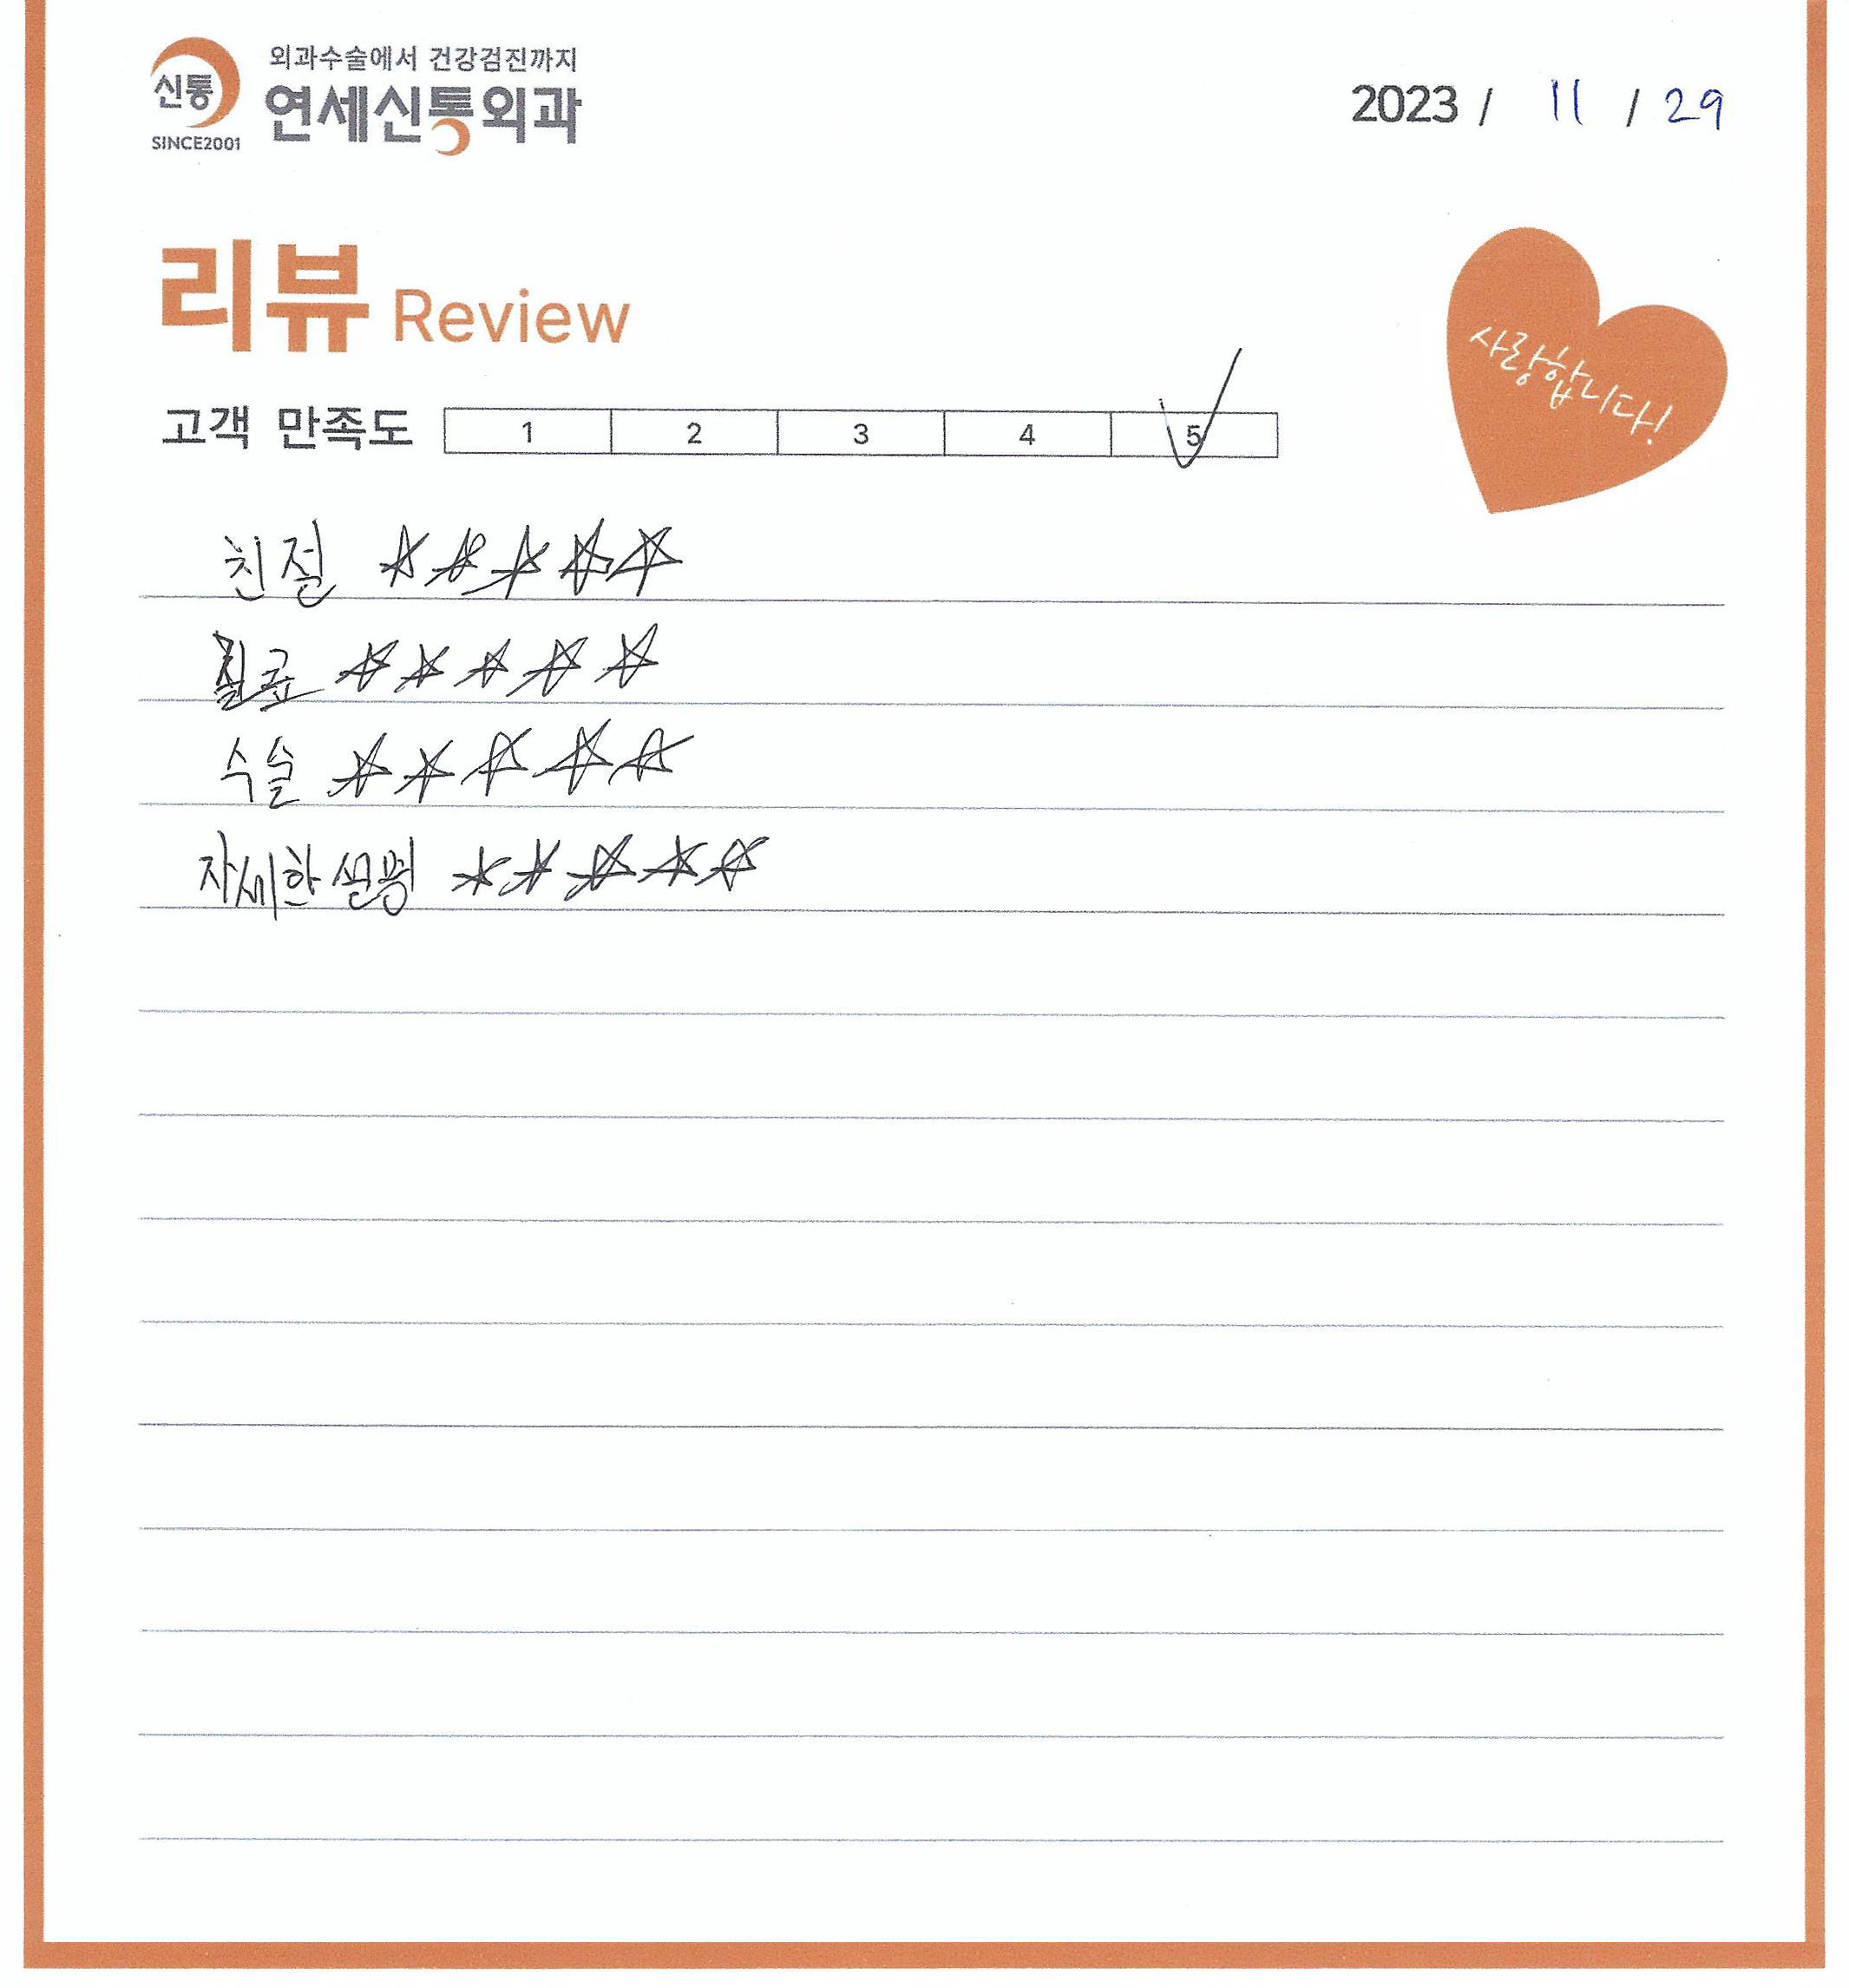 신통
SINCE2001
외과수술에서 건강검진까지
연세신통외과
2023 / 11 / 29
리뷰 Review
사랑합니다!
고객 만족도 1 2 3 4 5
친절 ☆☆☆☆☆
진료 ☆☆☆☆☆
수술 ☆☆☆☆☆
자세한 설명 ☆☆☆☆☆